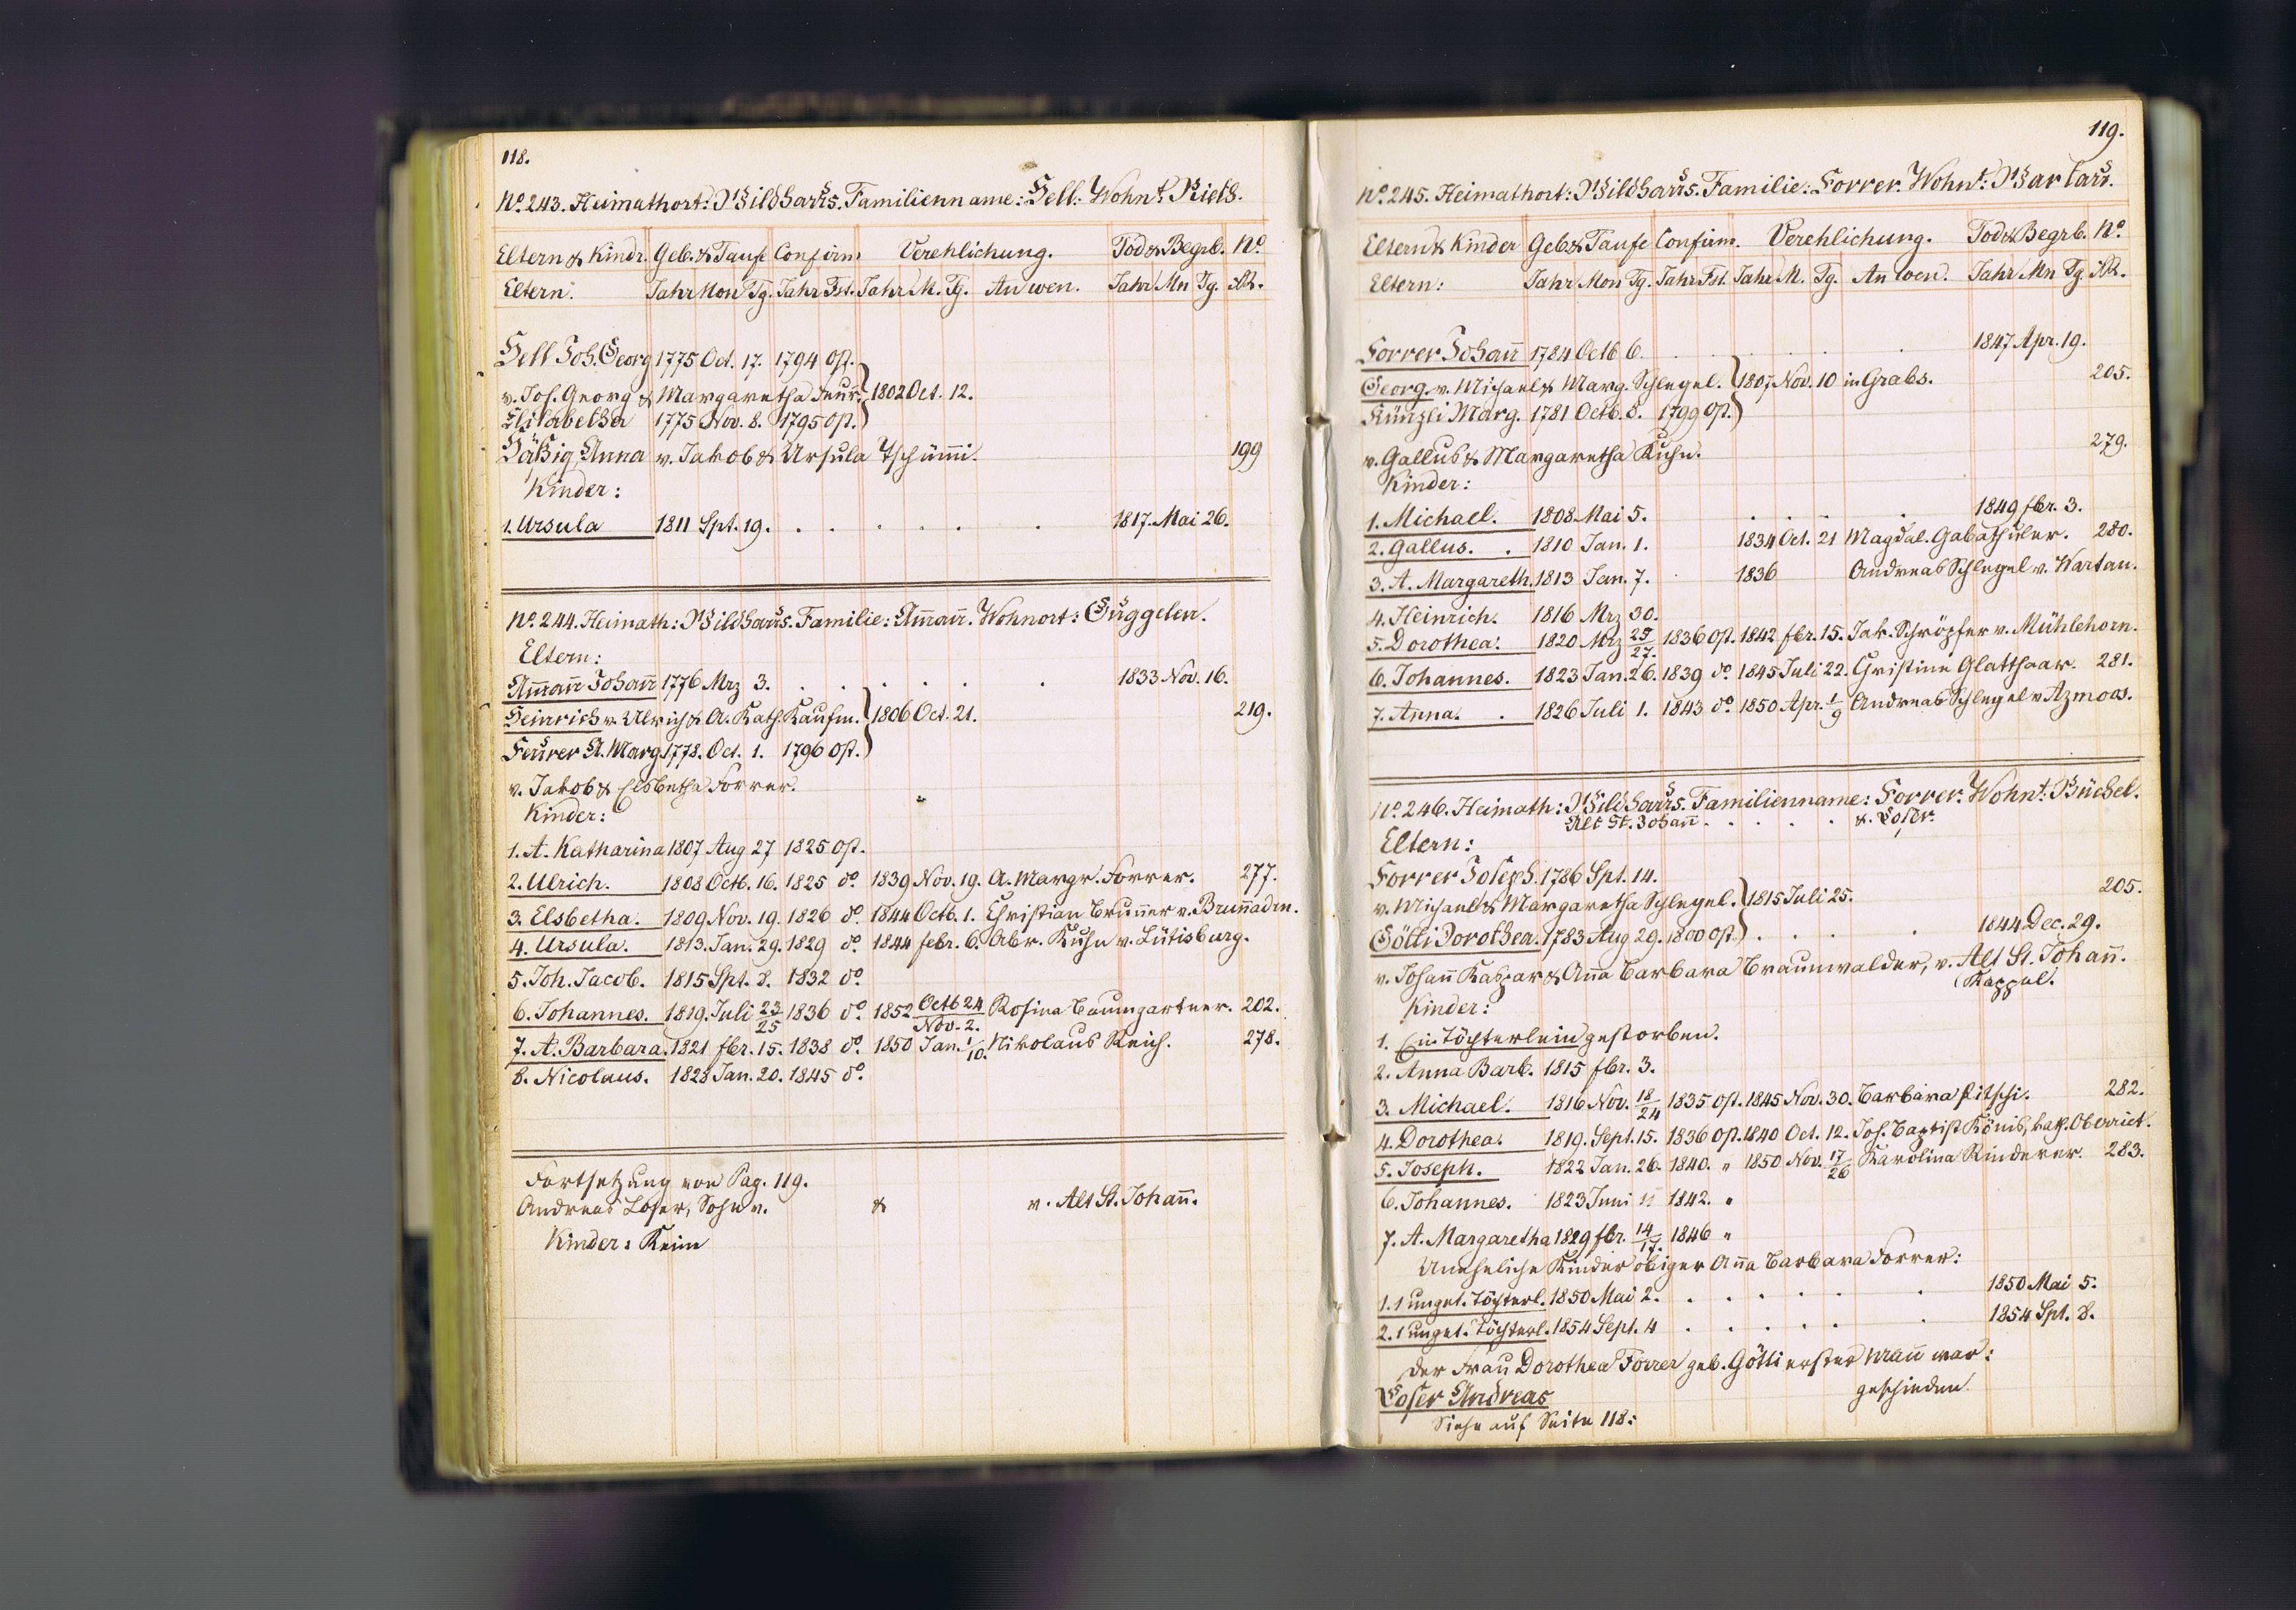 118.
No. 243. Heimathort: Wildhaus. Familienname: Hell. Wohnt. Rieth.
Eltern & Kindr. Geb. & Taufe Confirm Verehlichung. Tod & Begrb. No.
Eltern: Jahr Mon Tg. Jahr Fst. Jahr M. Tg. An wen. Jahr Mn Tg.
Hell Joh. Georg 1775 Oct. 17. 1794 Ost.
v. Joh. Georg & Margaretha Feurr. 1802 Oct. 12.
Elisabetha 1775 Nov. 8. 1795 Ost.
Anna v. Jakob & Ursula Tschümi. 199
Kinder:
1. Ursula 1811 Spt. 19. . . . . . . 1817. Mai 26.
No. 244. Heimath: Wildhaus. Familie: Amañ. Wohnort: Guggelen.
Eltern:
Amañ Johañ 1776 Mrz 3. . . . . . . 1833 Nov. 16.
Heinrich v. Ulrich & A. Kath. Kaufm. 1806 Oct. 21. 219.
Feurer A. Marg. 1778. Oct. 1. 1796 Ost.
v. Jakob & Elsbetha Forrer.
Kinder:
1. A. Katharina 1807 Aug 27 1825 Ost.
2. Ulrich. 1808 Octb. 16. 1825 do. 1839 Nov. 19. A. Margr. Forrer. 277.
3. Elsbetha. 1809 Nov. 19. 1826 do. 1844 Octb. 1. Christian Bruñer v. Bruñadrn.
4. Ursula. 1813. Jan. 29. 1829 do. 1844 febr. 6. Abr. Kuhn v. Lütisburg.
5. Joh. Jacob. 1815 Spt. 8. 1832 do.
6. Johannes. 1819. Juli 23/25 1836 do. 1852 Octb 24/Nov. 2. Rosina Baumgartner. 202.
7. A. Barbara. 1821 fbr. 15. 1838 do. 1850 Jan. 1/10. Nikolaus Reich. 278.
8. Nicolaus. 1828 Jan. 20. 1845 do.
Fortsetzung von Pag. 119.
Andreas Loser, Sohn v. & v. Alt St. Johañ.
Kinder: Keine
119.
No. 245. Heimathort: Wildhaus. Familie: Forrer. Wohnt:
Eltern & Kinder Geb. & Taufe Confirm. Verehlichung. Tod & Begrb. No.
Eltern: Jahr Mon Tg. Jahr Fst. Jahr M. Tg. An wen. Jahr Mn Tg.
Forrer Johañ 1784 Octb 6. . . . . . 1847 Apr. 19.
Georg v. Michael & Marg. Schlegel. 1807 Nov. 10 in Grabs. 205.
Künzli Marg. 1781 Octb. 8. 1799 Ost.
v. Gallus & Margaretha Kuhn. 279.
Kinder:
1. Michael. 1808 Mai 5. . . . . 1849 fbr. 3.
2. Gallus. . 1810 Jan. 1. 1834 Oct. 21 Magdal. Gabathuler. 280.
3. A. Margareth. 1813 Jan. 7. 1836 Andreas Schlegel v. Wartau.
4. Heinrich. 1816 Mrz 30.
5. Dorothea. 1820 Mrz 25/27. 1836 Ost. 1842 fbr. 15. Jak. Schröpfer v. Mühlehorn.
6. Johannes. 1823 Jan. 26. 1839 do. 1845 Juli 22. Cristina Glatthaar. 281.
7. Anna. . 1826 Juli 1. 1843 do. 1850 Apr. 1/9 Andreas Schlegel v Azmoos.
No. 246. Heimath: Wildhaus. Familienname: Forrer. Wohnt: Büchel.
Alt St. Johañ . . . . . &. Loser.
Eltern:
Forrer Joseph. 1786 Spt. 14.
v. Michael & Margaretha Schlegel. 1815 Juli 25. 205.
Götti Dorothea. 1783 Aug 29. 1800 Ost. . . . . 1844 Dec. 29.
v. Johañ Kaspar & Aña Barbara Braunwalder, v. Alt St. Johañ.
(Kappel.
Kinder:
1. Ein Töchterlein gestorben.
2. Anna Barb. 1815 fbr. 3.
3. Michael. 1816 Nov. 18/24 1835 Ost. 1845 Nov. 30. Barbara Litschi. 282.
4. Dorothea. 1819. Sept. 15. 1836 Ost. 1840 Oct. 12. Jos. Baptist König, kath. Oberriet.
5. Joseph. 1822 Jan. 26. 1840. " 1850 Nov. 17/26 Karolina Rinderer. 283.
6. Johannes. 1823 Juni 15 1842. "
7. A. Margaretha 1829 fbr. 14/17. 1846 "
Uneheliche Kinder obiger Aña Barbara Forrer:
1. 1 unget. Töchterl. 1850 Mai 2. . . . . . . 1850 Mai 5.
2. 1 unget. Töchterl. 1854 Sept. 4 . . . . . . 1854 Spt. 8.
Der Frau Dorothea Forrer geb. Götti erster Mañ war:
Loser Andreas geschieden.
Siehe auf Seite 118: